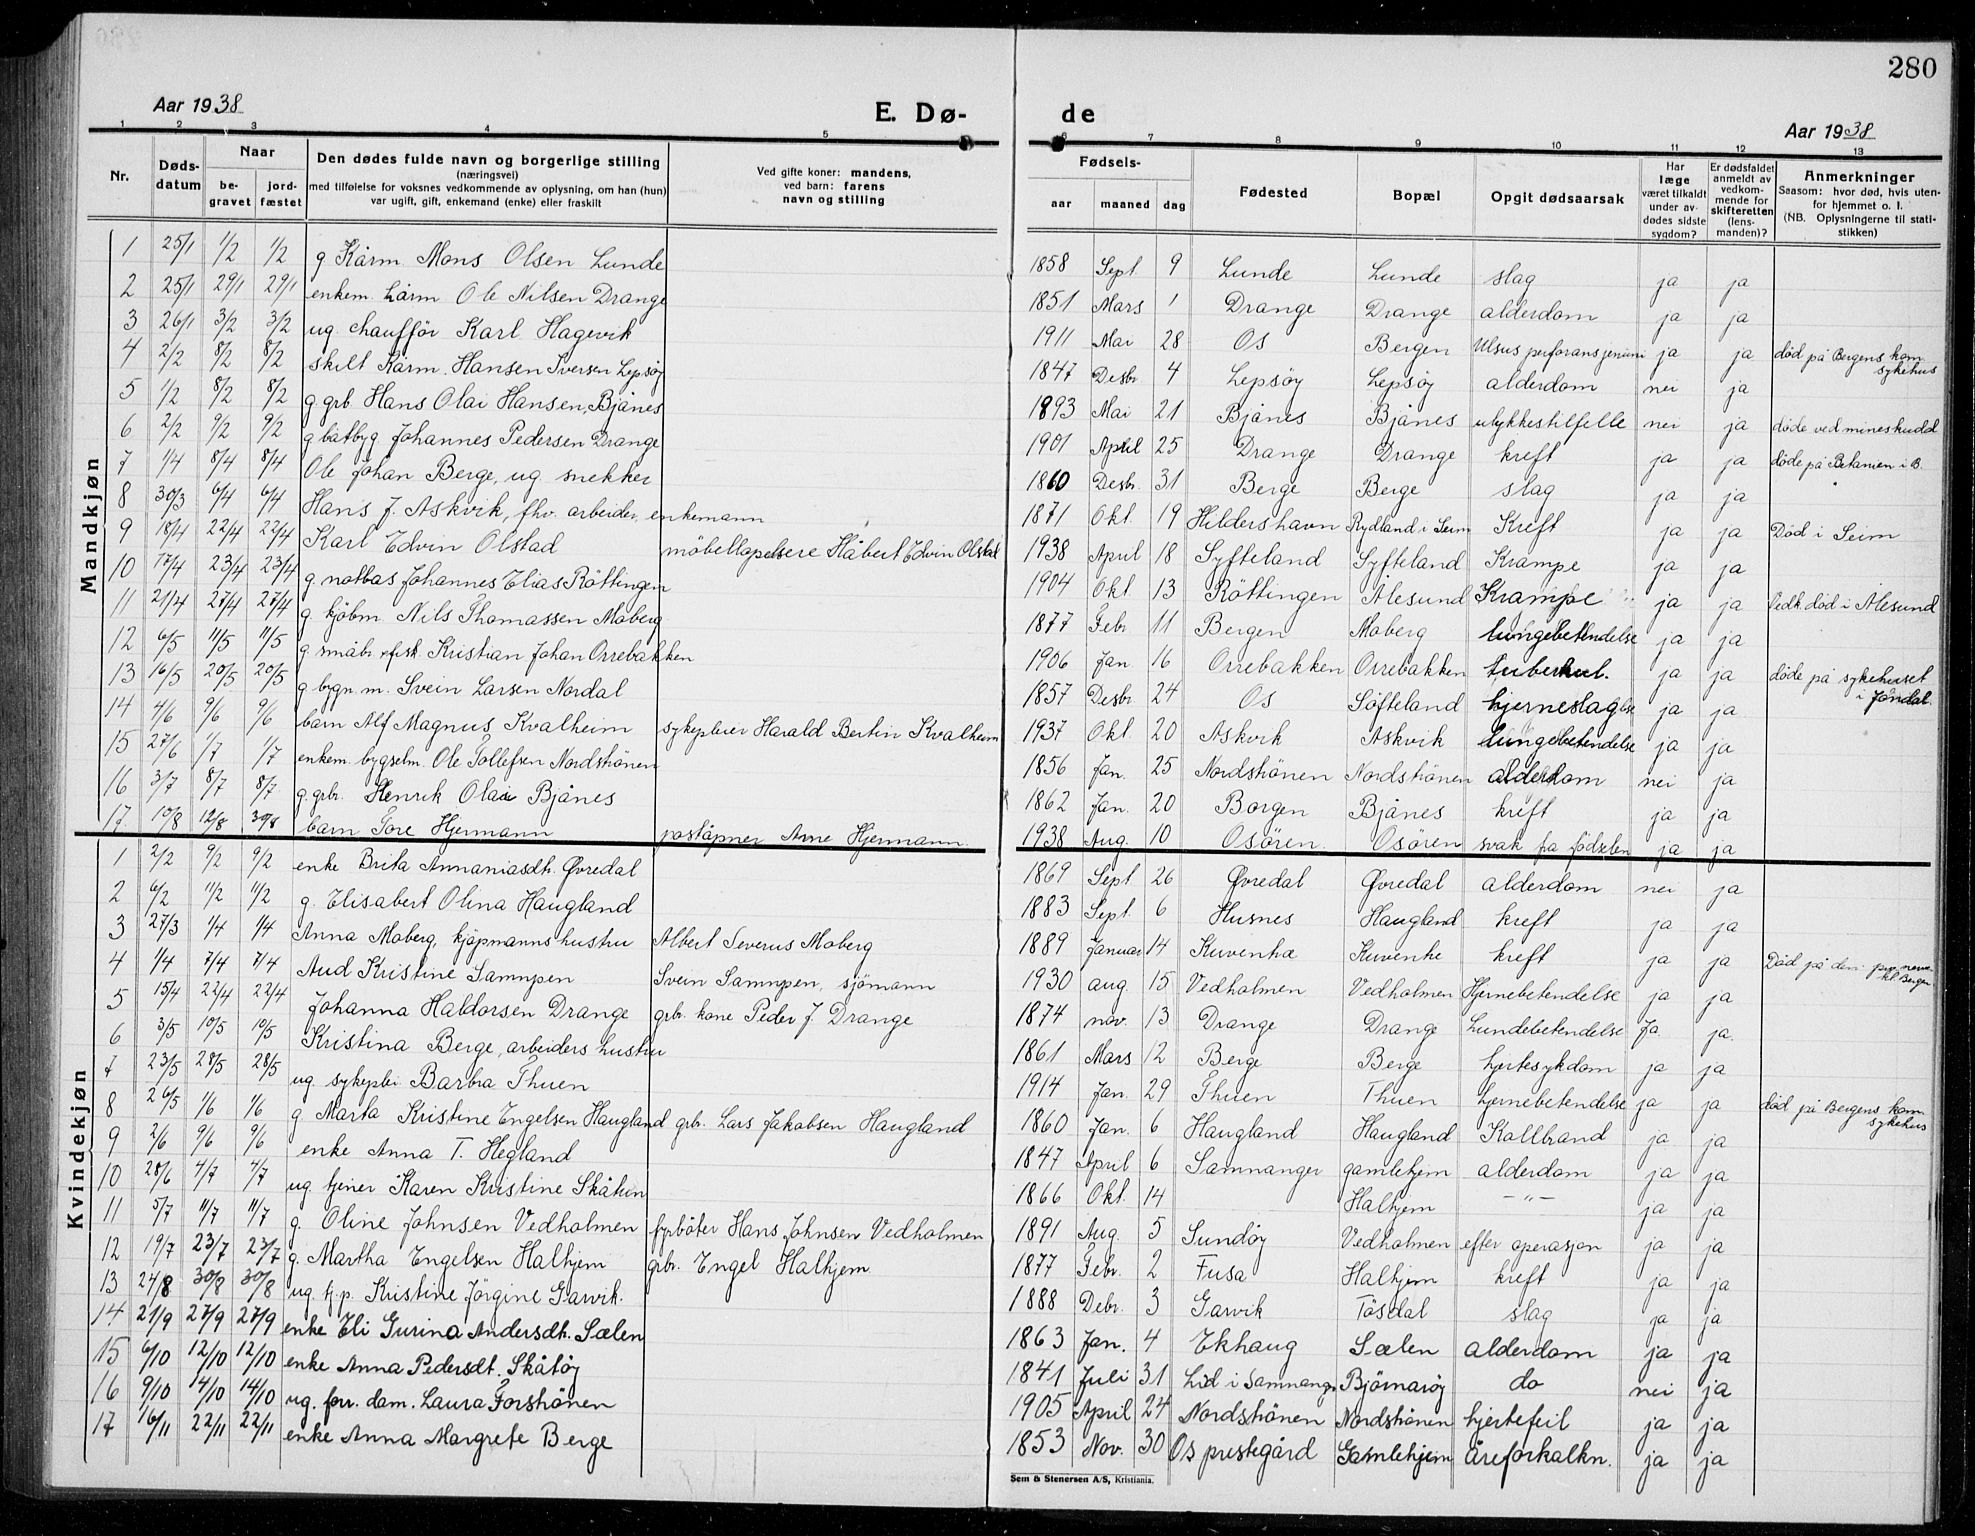 280
Aar 1938
E. Dø- de
Aar 1938
1 2 3 4 5 6 7 8 9 10 11 12 13
Nr.
Døds-datum
Naar
be-gravet
jord-fæstet
Den dødes fulde navn og borgerlige stilling
(næringsvei)
med tilføielse for voksnes vedkommende av oplysning, om han (hun)
var ugift, gift, enkemand (enke) eller fraskilt
Ved gifte koner: mandens,
ved barn: farens
navn og stilling
Fødsels-
aar maaned dag
Fødested
Bopæl
Opgit dødsaarsak
Har læge været tilkaldt under av-dødes sidste sygdom?
Er dødsfaldet anmeldt av vedkom-mende for skifteretten (lens-manden)?
Anmerkninger
Saasom: hvor død, hvis uten-for hjemmet o. l.
(NB. Oplysningerne til stati-stikken)
Mandkjøn
1 25/1 1/2 1/2 g Kårm. Mons Olsen Lunde 1858 Sept. 9 Lunde Lunde slag ja ja
2 25/1 29/1 29/1 enkem. kårm Ole Nilsen Drange 1851 Mars 1 Drange Drange alderdom ja ja
3 26/1 3/2 3/2 ug. chauffør Karl Hagevik 1911 Mai 28 Os Bergen Ulsus perforans jenuni ja ja død på Bergens kom. sykehus
4 2/2 8/2 8/2 skilt Kårm. Hansen Iversen Lepsøy 1847 Desbr 4 Lepsøy Lepsøy alderdom nei ja
5 1/2 8/2 8/2 g. grb. Hans Olai Hansen, Bjånes 1893 Mai 21 Bjånes Bjånes ulykkestilfelle nei ja døde ved mineskudd
6 2/2 9/2 9/2 g båtbyg. Johannes Pedersen Drange 1901 April 25 Drange Drange kreft ja ja døde på Betanien i B.
7 1/4 8/4 8/4 Ole Johan Berge, ug snekker 1860 Desbr. 31 Berge Berge slag ja ja
8 30/3 6/4 6/4 Hans J. Askvik, fhv. arbeider, enkemann 1871 Okt. 19 Hildershavn Rydland i Seim Kreft ja ja Død i Seim
9 18/4 22/4 22/4 Karl Edvin Olstad møbeltapetsere Håbert Edvin Olstad 1938 April 18 Syfteland Syfteland Krampe ja ja
10 17/4 23/4 23/4 g. notbas Johannes Elias Röttingen 1904 Okt 13 Röttingen Ålesund Krampe ja ja Vedk. død i Ålesund
11 21/4 27/4 27/4 g. kjøbm Nils Thomassen Moberg 1877 Febr 11 Bergen Moberg lungebetendelse ja ja
12 6/5 11/5 11/5 g småbr. fisk Kristian Johan Orrebakken 1906 Jan. 16 Orrebakken Orrebakken tuberkul. ja ja døde på sykehuset i Jondal.
13 16/5 20/5 20/5 g bygn. m. Svein Larsen Nordal 1857 Desbr 24 Os Søfteland hjerneslag ja ja
14 4/6 9/6 9/6 barn Alf Magnus Kvalheim sykepleier Harald Bertin Kvalheim 1937 Okt. 20 Askvik Askvik lungebetendelse ja ja
15 27/6 1/7 1/7 enkem. bygselm. Ole Tollefsen Nordströnen 1856 Jan. 25 Nordströnen Nordströnen alderdom nei ja
16 3/7 8/7 8/7 g. grbr. Henrik Olai Bjånes 1862 Jan. 20 Borgen Bjånes kreft ja ja
17 10/8 12/8 30/8 barn Tore Hjermann poståpner Arne Hjermann. 1938 Aug. 10 Osøren. Osøren svak fra fødselen ja ja
Kvindekjøn
1 2/2 9/2 9/2 enke Brita Annaniasdt. Øvredal 1869 Sept 26 Øvredal Øvredal alderdom nei ja
2 6/2 11/2 11/2 g. Elisabert Olina Haugland 1883 Sept. 6 Husnes Haugland kreft ja ja
3 27/3 1/4 1/4 Anna Moberg, kjøpmanns hustru Albert Severus Moberg 1889 Januar 14 Kuvenhe Kuvenhe kreft ja ja Død på den kl. Bergen
4 1/4 7/4 7/4 Aud Kristine Samnpen Svein Samnpen, sjømann 1930 aug. 15 Vedholmen Vedholmen Hjernebetendelse ja ja
5 15/4 22/4 22/4 Johanna Haldorsen Drange grb. kone Peder J. Drange 1874 nov. 13 Drange Drange Lundebetendelse Ja. ja.
6 3/5 10/5 10/5 Kristina Berge, arbeiders hustru 1861 Mars 12 Berge Berge hjertesykdom ja ja
7 23/5 28/5 28/5 ug. sykeplei Barbra Thuen 1914 Jan. 29 Thuen Thuen hjernebetendelse ja ja død på Bergens kom. sykehus
8 26/5 1/6 1/6 g Marta Kristine Engelsen Haugland grb. Lars Jakobsen Haugland 1860 Jan. 6 Haugland Haugland Kallbrand ja ja
9 2/6 9/6 9/6 enke Anna T. Hegland 1847 April 6 Samnanger gamlehjem alderdom ja ja
10 28/6 4/7 4/7 ug. tjener Karen Kristine Skåtun 1866 Okt. 14 Halhjem -"- ja ja
11 5/7 11/7 11/7 g. Oline Johnsen Vedholmen fyrbøter Hans Johnsen Vedholmen 1891 Aug. 5 Sundøy Vedholmen efter operasjon ja ja
12 19/7 23/7 23/7 g. Martha Engelsen Halhjem grbr. Engel Halhjem 1877 Febr. 2 Fusa Halhjem kreft ja ja
13 24/8 30/8 30/8 ug. tj.p. Kristine Jørgine Garvik. 1888 Debr. 3 Garvik Tøsdal slag ja ja
14 21/9 27/9 27/9 enke Eli Gurina Andersdt. Sælen 1863 Jan. 4 Ekhaug Sælen alderdom ja ja
15 6/10 12/10 12/10 enke Anna Pedersdt. Skåtøy 1841 Juli 31 Lid i Samnang. Bjørnarøy do nei ja
16 9/10 14/10 14/10 ug. frr. dam. Laura Forströnen 1905 April 24 Nordströnen Nordströnen hjertefeil ja ja
17 16/11 22/11 22/11 enke Anna Margrete Berge 1853 Nov. 30 Os prestegård Gamlehjem Åreforkalkn. ja ja
Sem & Stenersen A/S, Kristiania.